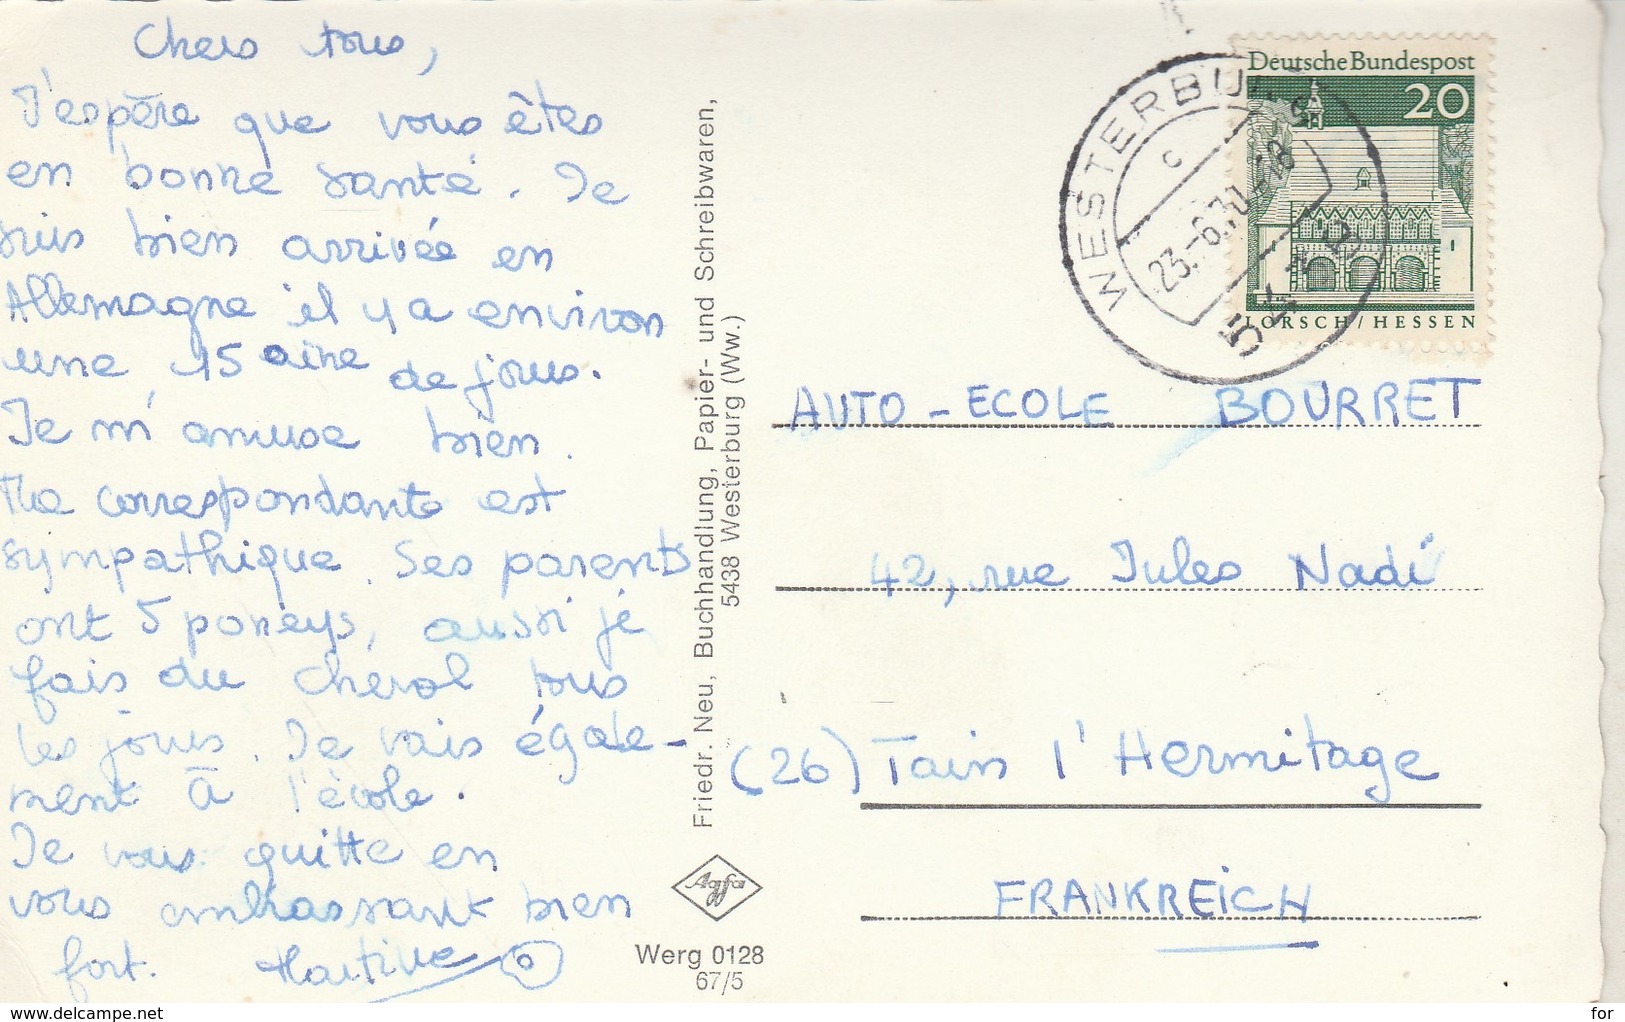 Chers tous,
J'espère que vous êtes
en bonne santé. Je
suis bien arrivée en
Allemagne il y a environ
une 15 aine de jours.
Je m'amuse bien.
Ma correspondante est
sympathique. Ses parents
ont 5 poneys, aussi je
fais du cheval tous
les jours. Je vais égale-
ment à l'école.
Je vous quitte en
vous embrassant bien
fort. Martine
Friedr. Neu, Buchhandlung, Papier- und Schreibwaren,
5438 Westerburg (Ww.)
Agfa
Werg 0128
67/5
Deutsche Bundespost
20
LORSCH/HESSEN
WESTERBURG
c
23.-6.70-18
5438
AUTO-ECOLE BOURRET
42, rue Jules Nadi
(26) Tain l'Hermitage
FRANKREICH
delcampe.net
for